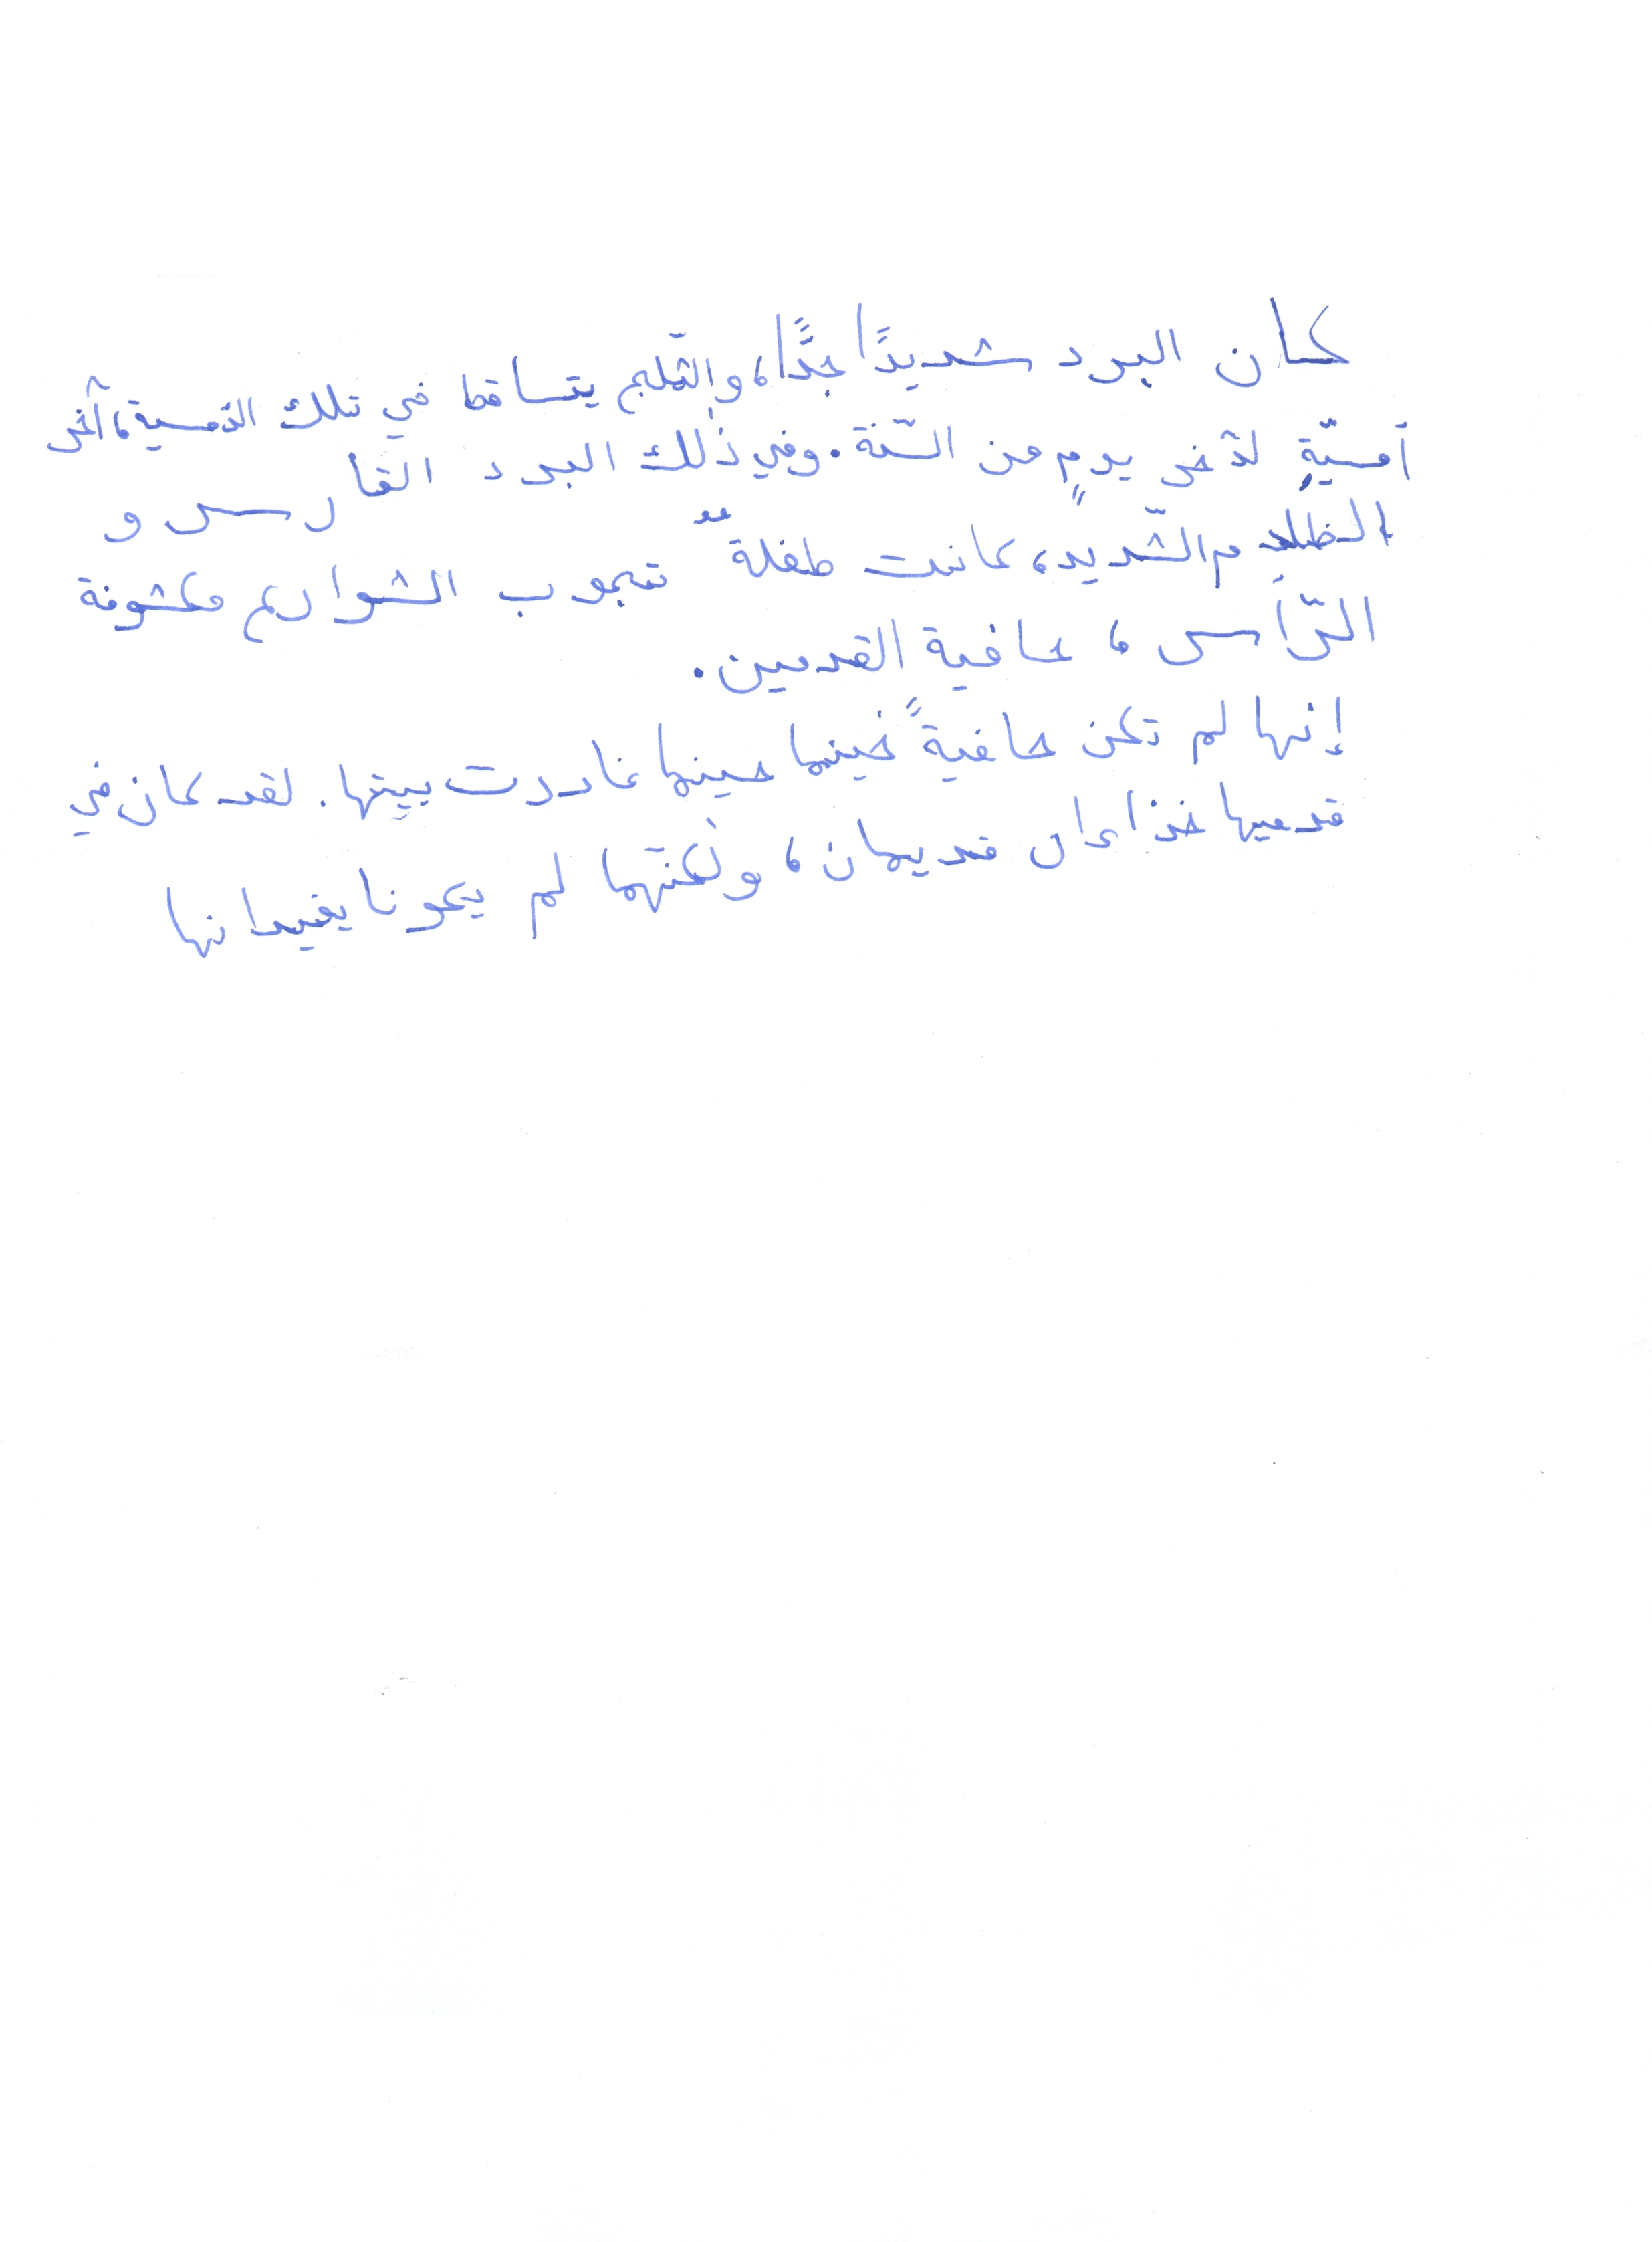 كان البرد شديدًا جدًّا، والثّلج يتساقط في تلك الأمسية، آخر
أمسيّةٍ لآخر يومٍ من السّنة. وفي ذٰلك البرد القارس و
الظلام الشّديد، كانت طفلةٌ تجوب الشوارع مكشوفة
الرّأس، حافية القدمين.
إنها لم تكن حافيةً خينما حينما غادرت بيتها. لقد كان في
قدميها خذاءان قديمان، ولٰكنّهما لم يكونا يفيدانها